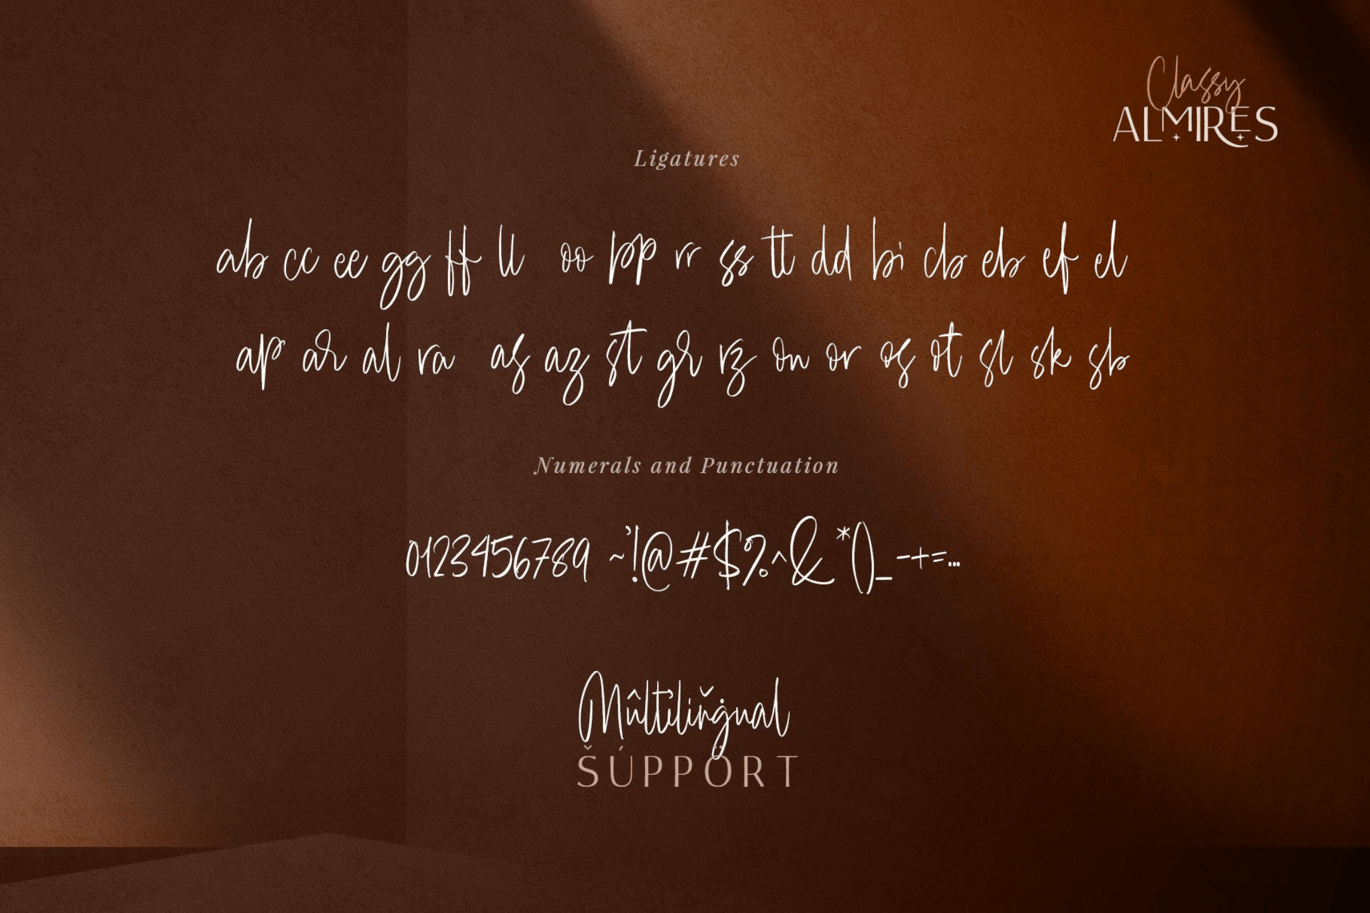 Classy
ALMIRES
Ligatures
ab cc ee gg ff ll oo pp rr ss tt dd bi cb eb ef el
ap ar al ra as az st gr rz on or os ot sl sk sb
Numerals and Punctuation
0123456789 ~'!@#$%^&*()_-+=...
Mûltiliňġual
ŠÚPPÓRT